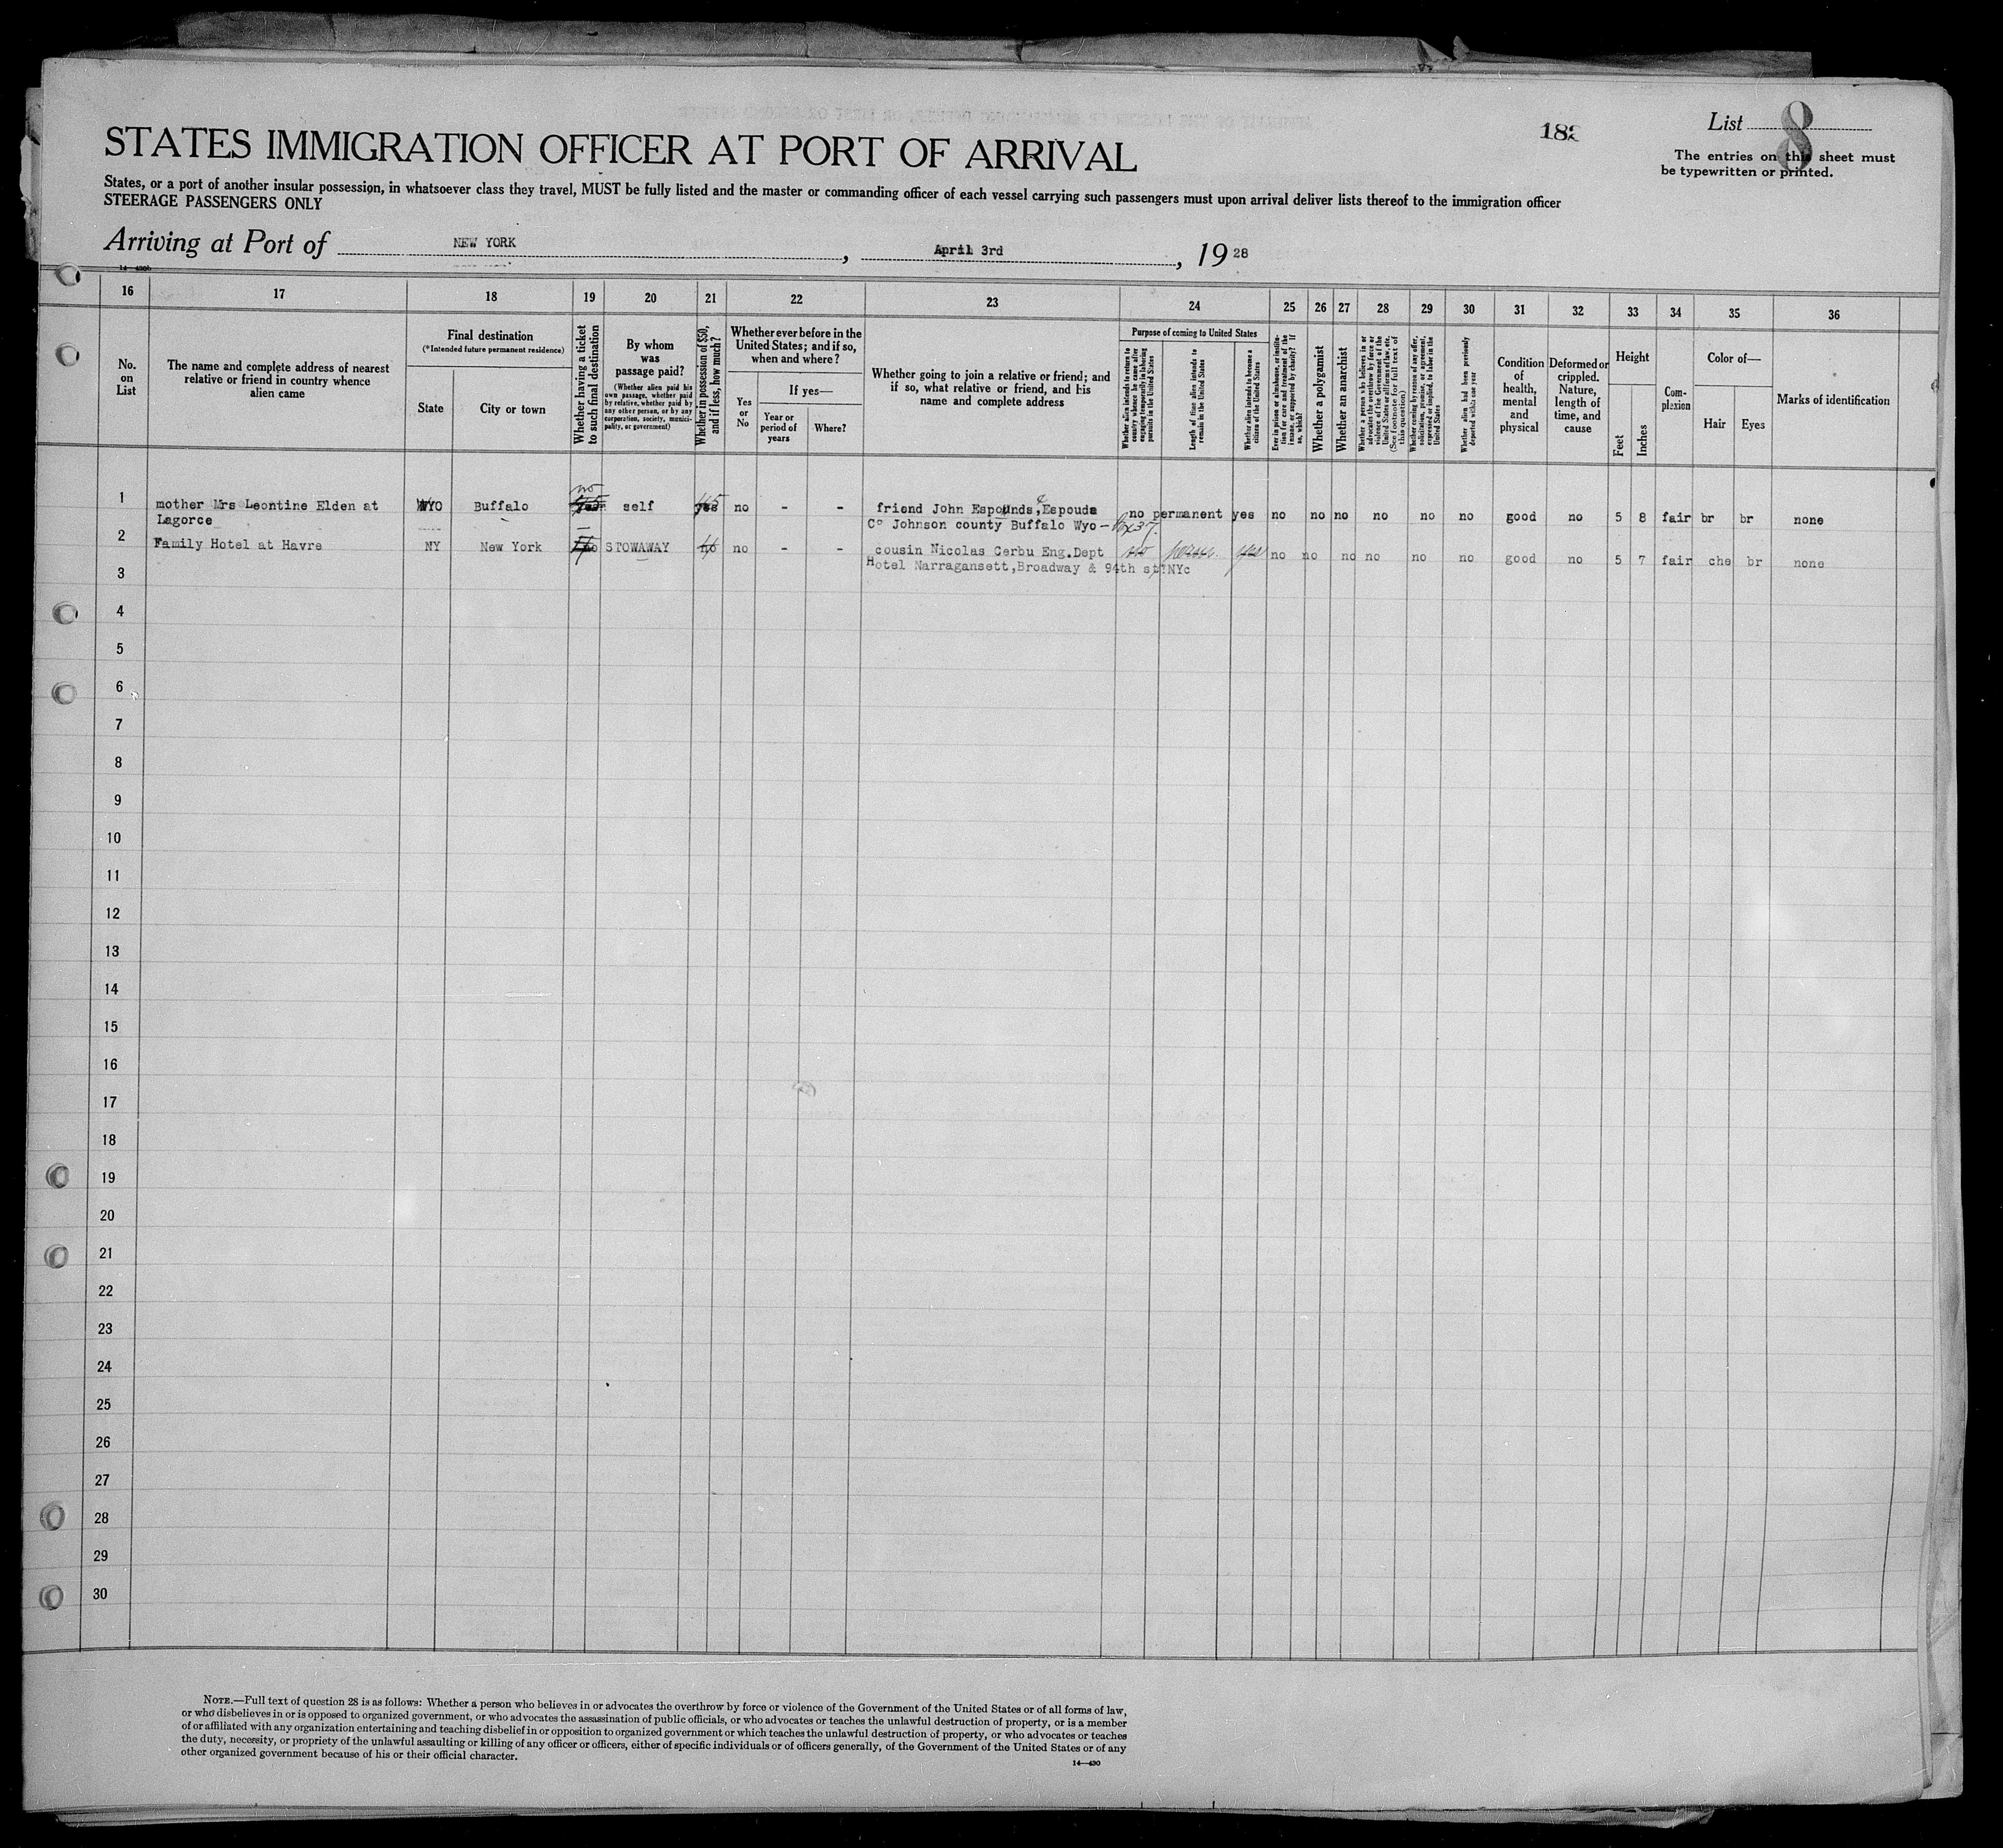 182
List 8
STATES IMMIGRATION OFFICER AT PORT OF ARRIVAL
The entries on this sheet must
be typewritten or printed.
States, or a port of another insular possession, in whatsoever class they travel, MUST be fully listed and the master or commanding officer of each vessel carrying such passengers must upon arrival deliver lists thereof to the immigration officer
STEERAGE PASSENGERS ONLY
Arriving at Port of NEW YORK, April 3rd, 1928
16 17 18 19 20 21 22 23 24 25 26 27 28 29 30 31 32 33 34 35 36
No. on List
The name and complete address of nearest relative or friend in country whence alien came
Final destination
(*Intended future permanent residence)
State
City or town
Whether having a ticket to such final destination
By whom was passage paid?
(Whether alien paid his own passage, whether paid by relative, whether paid by any other person, or by any corporation, society, municipality, or government)
Whether in possession of $50, and if less, how much?
Whether ever before in the United States; and if so, when and where?
Yes or No
If yes—
Year or period of years
Where?
Whether going to join a relative or friend; and if so, what relative or friend, and his name and complete address
Purpose of coming to United States
Whether alien intends to return to country whence he came after engaging temporarily in laboring pursuits in the United States
Length of time alien intends to remain in the United States
Whether alien intends to become a citizen of the United States
Ever in prison or almshouse, or institution for care and treatment of the insane, or supported by charity? If so, which?
Whether a polygamist
Whether an anarchist
Whether a person who believes in or advocates the overthrow by force or violence of the Government of the United States or all forms of law, etc. (See footnote for full text of this question)
Whether coming by reason of any offer, solicitation, promise, or agreement, expressed or implied, to labor in the United States
Whether alien had been previously deported within one year
Condition of health, mental and physical
Deformed or crippled. Nature, length of time, and cause
Height
Feet
Inches
Complexion
Color of—
Hair
Eyes
Marks of identification
no
1 mother Mrs Leontine Elden at WYO Buffalo self yes no - - friend John Espounds, Espouda no permanent yes no no no no no no good no 5 8 fair br br none
Lagorce Co Johnson county Buffalo Wyo - Bx 37.
2 Family Hotel at Havre NY New York STOWAWAY no - - cousin Nicolas Cerbu Eng.Dept no yes no no no no no no good no 5 7 fair che br none
Hotel Narragansett, Broadway & 94th st NYc
3
4
5
6
7
8
9
10
11
12
13
14
15
16
17
18
19
20
21
22
23
24
25
26
27
28
29
30
NOTE.—Full text of question 28 is as follows: Whether a person who believes in or advocates the overthrow by force or violence of the Government of the United States or of all forms of law,
or who disbelieves in or is opposed to organized government, or who advocates the assassination of public officials, or who advocates or teaches the unlawful destruction of property, or is a member
of or affiliated with any organization entertaining and teaching disbelief in or opposition to organized government or which teaches the unlawful destruction of property, or who advocates or teaches
the duty, necessity, or propriety of the unlawful assaulting or killing of any officer or officers, either of specific individuals or of officers generally, of the Government of the United States or of any
other organized government because of his or their official character.
14—430